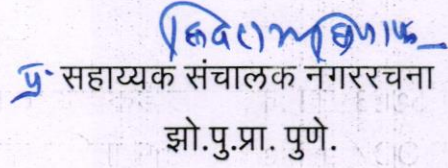 प्र. सहाय्यक संचालक नगररचना
झो.पु.प्रा. पुणे.